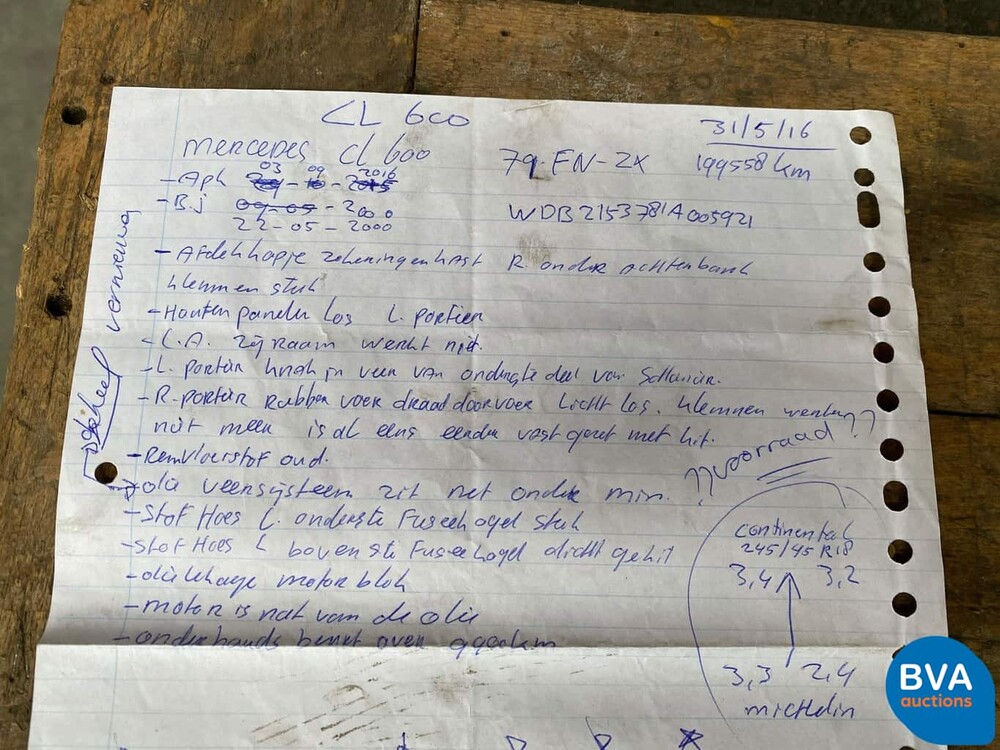 CL 600
31/5/16
mercedes CL 600
79-FN-ZX
199558 km
- Apk 03 - 09 - 2016
- B.j 09-05-2000
22-05-2000
WDB2153781A005921
- Afdekkapje zekeringenkast R. onder achterbank
klemmen stuk
- Houten panelen los L. portier
- L.A. zijraam werkt niet.
- L. portier knak in veer van onderste deel van scharnier.
- R. portier rubber voor draaddoorvoer licht los. klemmen werken
niet meer is al eens eerder vast gezet met kit.
- Remvloeistof oud.
olie veersysteem zit net onder min.
- Stof Hoes L. onderste Fuseekogel stuk
- Stof Hoes L bovenste Fuseekogel dicht gekit
- olielekkage motorblok
- motor is nat van de olie
- onderhouds beurt over
vernieuwd
?? voorraad ??
continental
245/45 R18
3,4 3,2
3,3 2,4
michelin
BVA
auctions